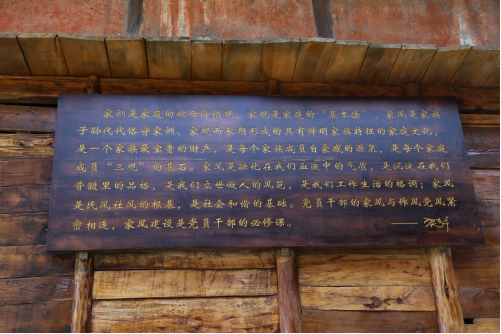 家训是家庭的核心价值观，家规是家庭的“基本法”，家风是家族
子孙代代恪守家训、家规而长期形成的具有鲜明家族特征的家庭文化，
是一个家族最宝贵的财产，是每个家族成员自豪感的源泉，是每个家庭
成员“三观”的基石。家风是融化在我们血液中的气质，是沉淀在我们
骨髓里的品格，是我们立世做人的风范，是我们工作生活的格调；家风
是民风社风的根基，是社会和谐的基础。党员干部的家风与作风党风紧
密相连，家风建设是党员干部的必修课。 ——